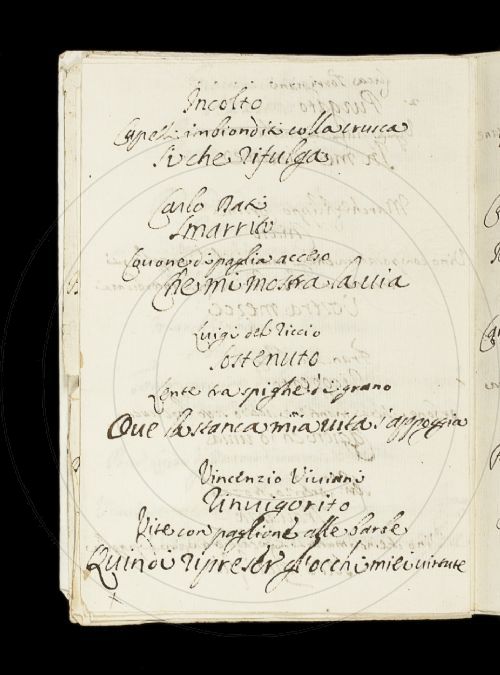 Incolto
Capelli imbionditi colla crusca
Si che Rifulga
Carlo Dati
Smarrito
Covone di paglia acceso
Che mi mostra la via
Luigi del Riccio
Sostenuto
Lente tra spighe di grano
Ove la stanca mia vita s'appoggia
Vincenzio Viviani
Rinvigorito
Vite con paglione alle barbe
Quindi ripreser gl'occhi miei virtute